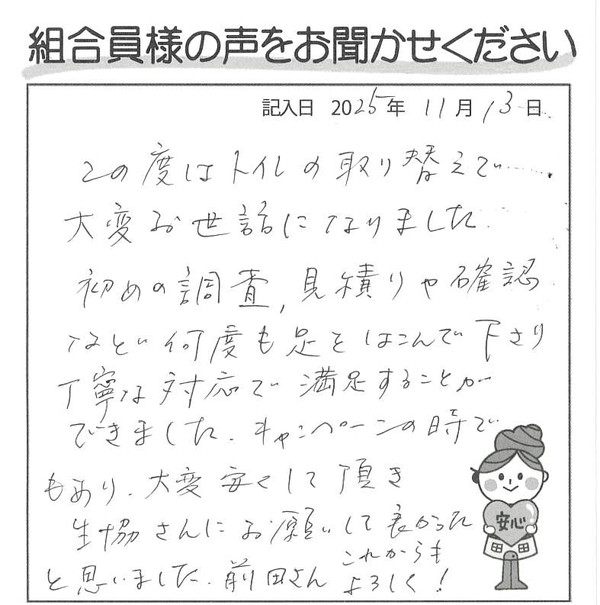 組合員様の声をお聞かせください
記入日 2025年 11月 13日
この度はトイレの取り替えで……
大変お世話になりました.
初めの調査,見積りや確認
などい何度も足をはこんで下さり
丁寧な対応で満足することが
できました.キャンペーンの時で
もあり.大変安くして頂き
生協さんにお願いして良かった
と思いました.前田さん これからも
よろしく!
安心